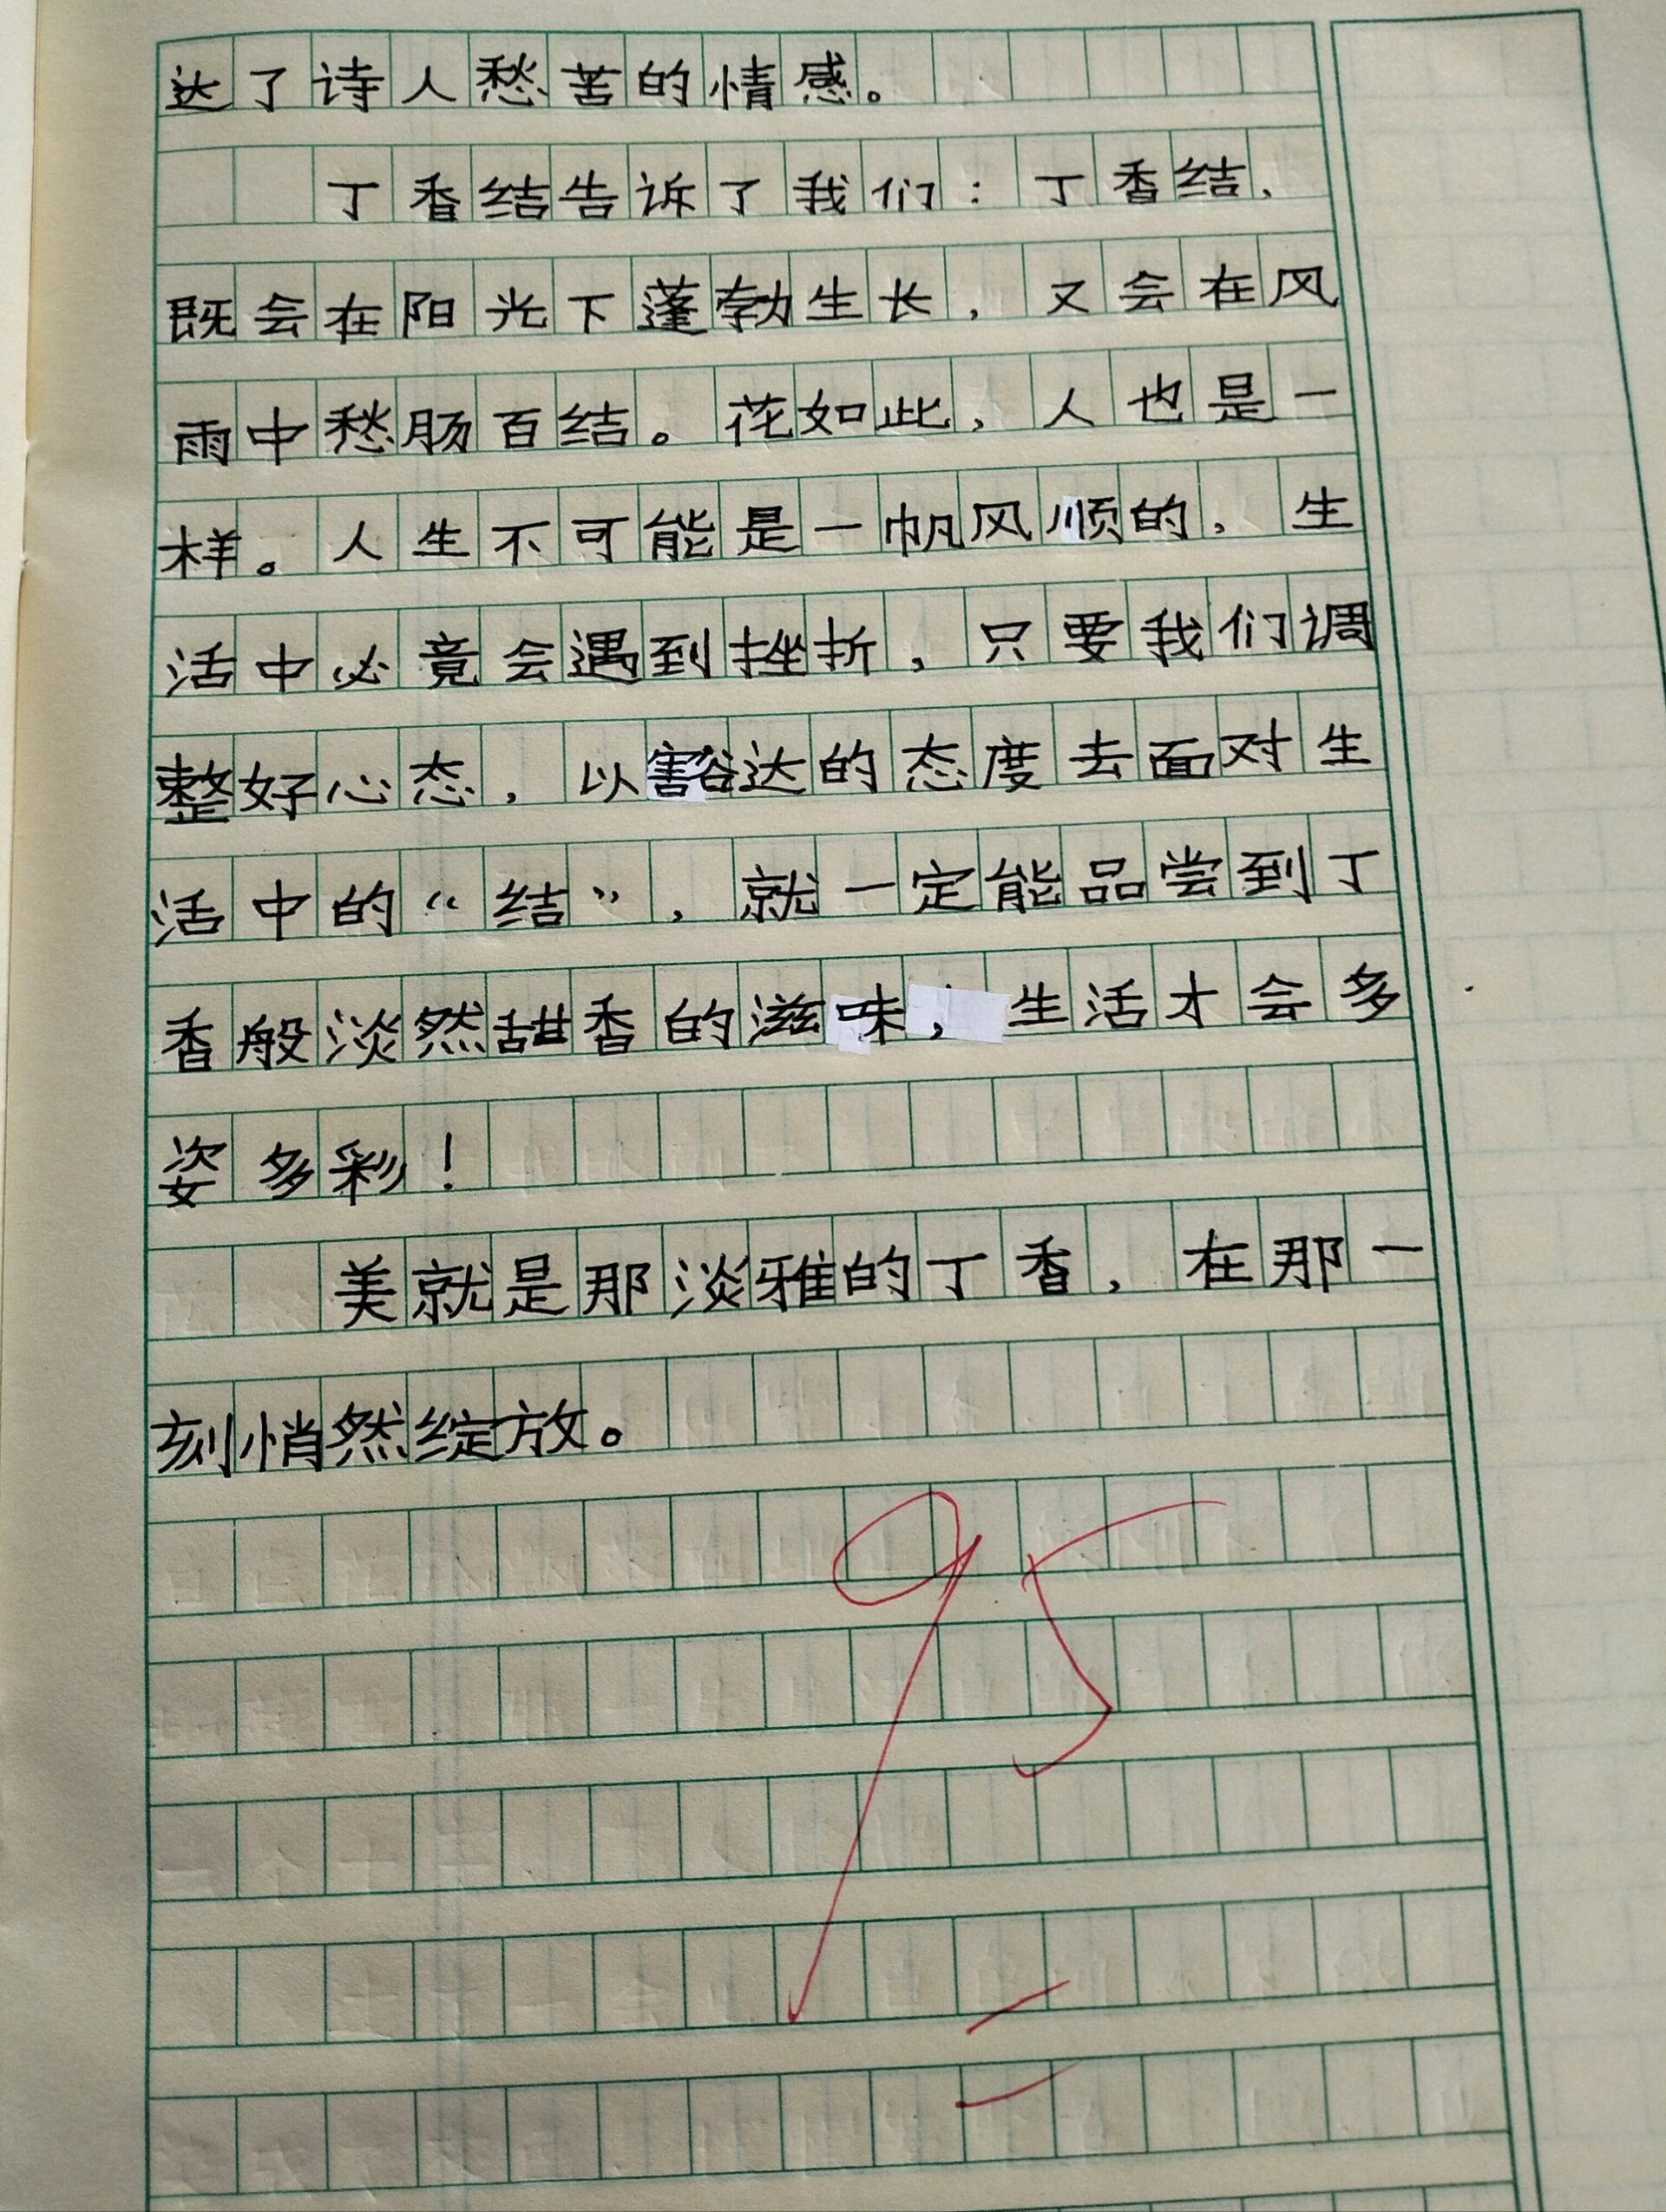 达了诗人愁苦的情感。
丁香结告诉了我们：丁香结，
既会在阳光下蓬勃生长，又会在风
雨中愁肠百结。花如此，人也是一
样。人生不可能是一帆风顺的，生
活中必竟会遇到挫折，只要我们调
整好心态，以豁达的态度去面对生
活中的“结”，就一定能品尝到丁
香般淡然甜香的滋味，生活才会多
姿多彩！
美就是那淡雅的丁香，在那一
刻悄然绽放。
95